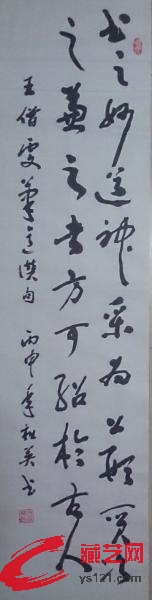 书之妙道神采为上形质次
之兼之者方可绍于古人
王僧虔笔意赞句 丙申年 书
藏艺网
ys121.com